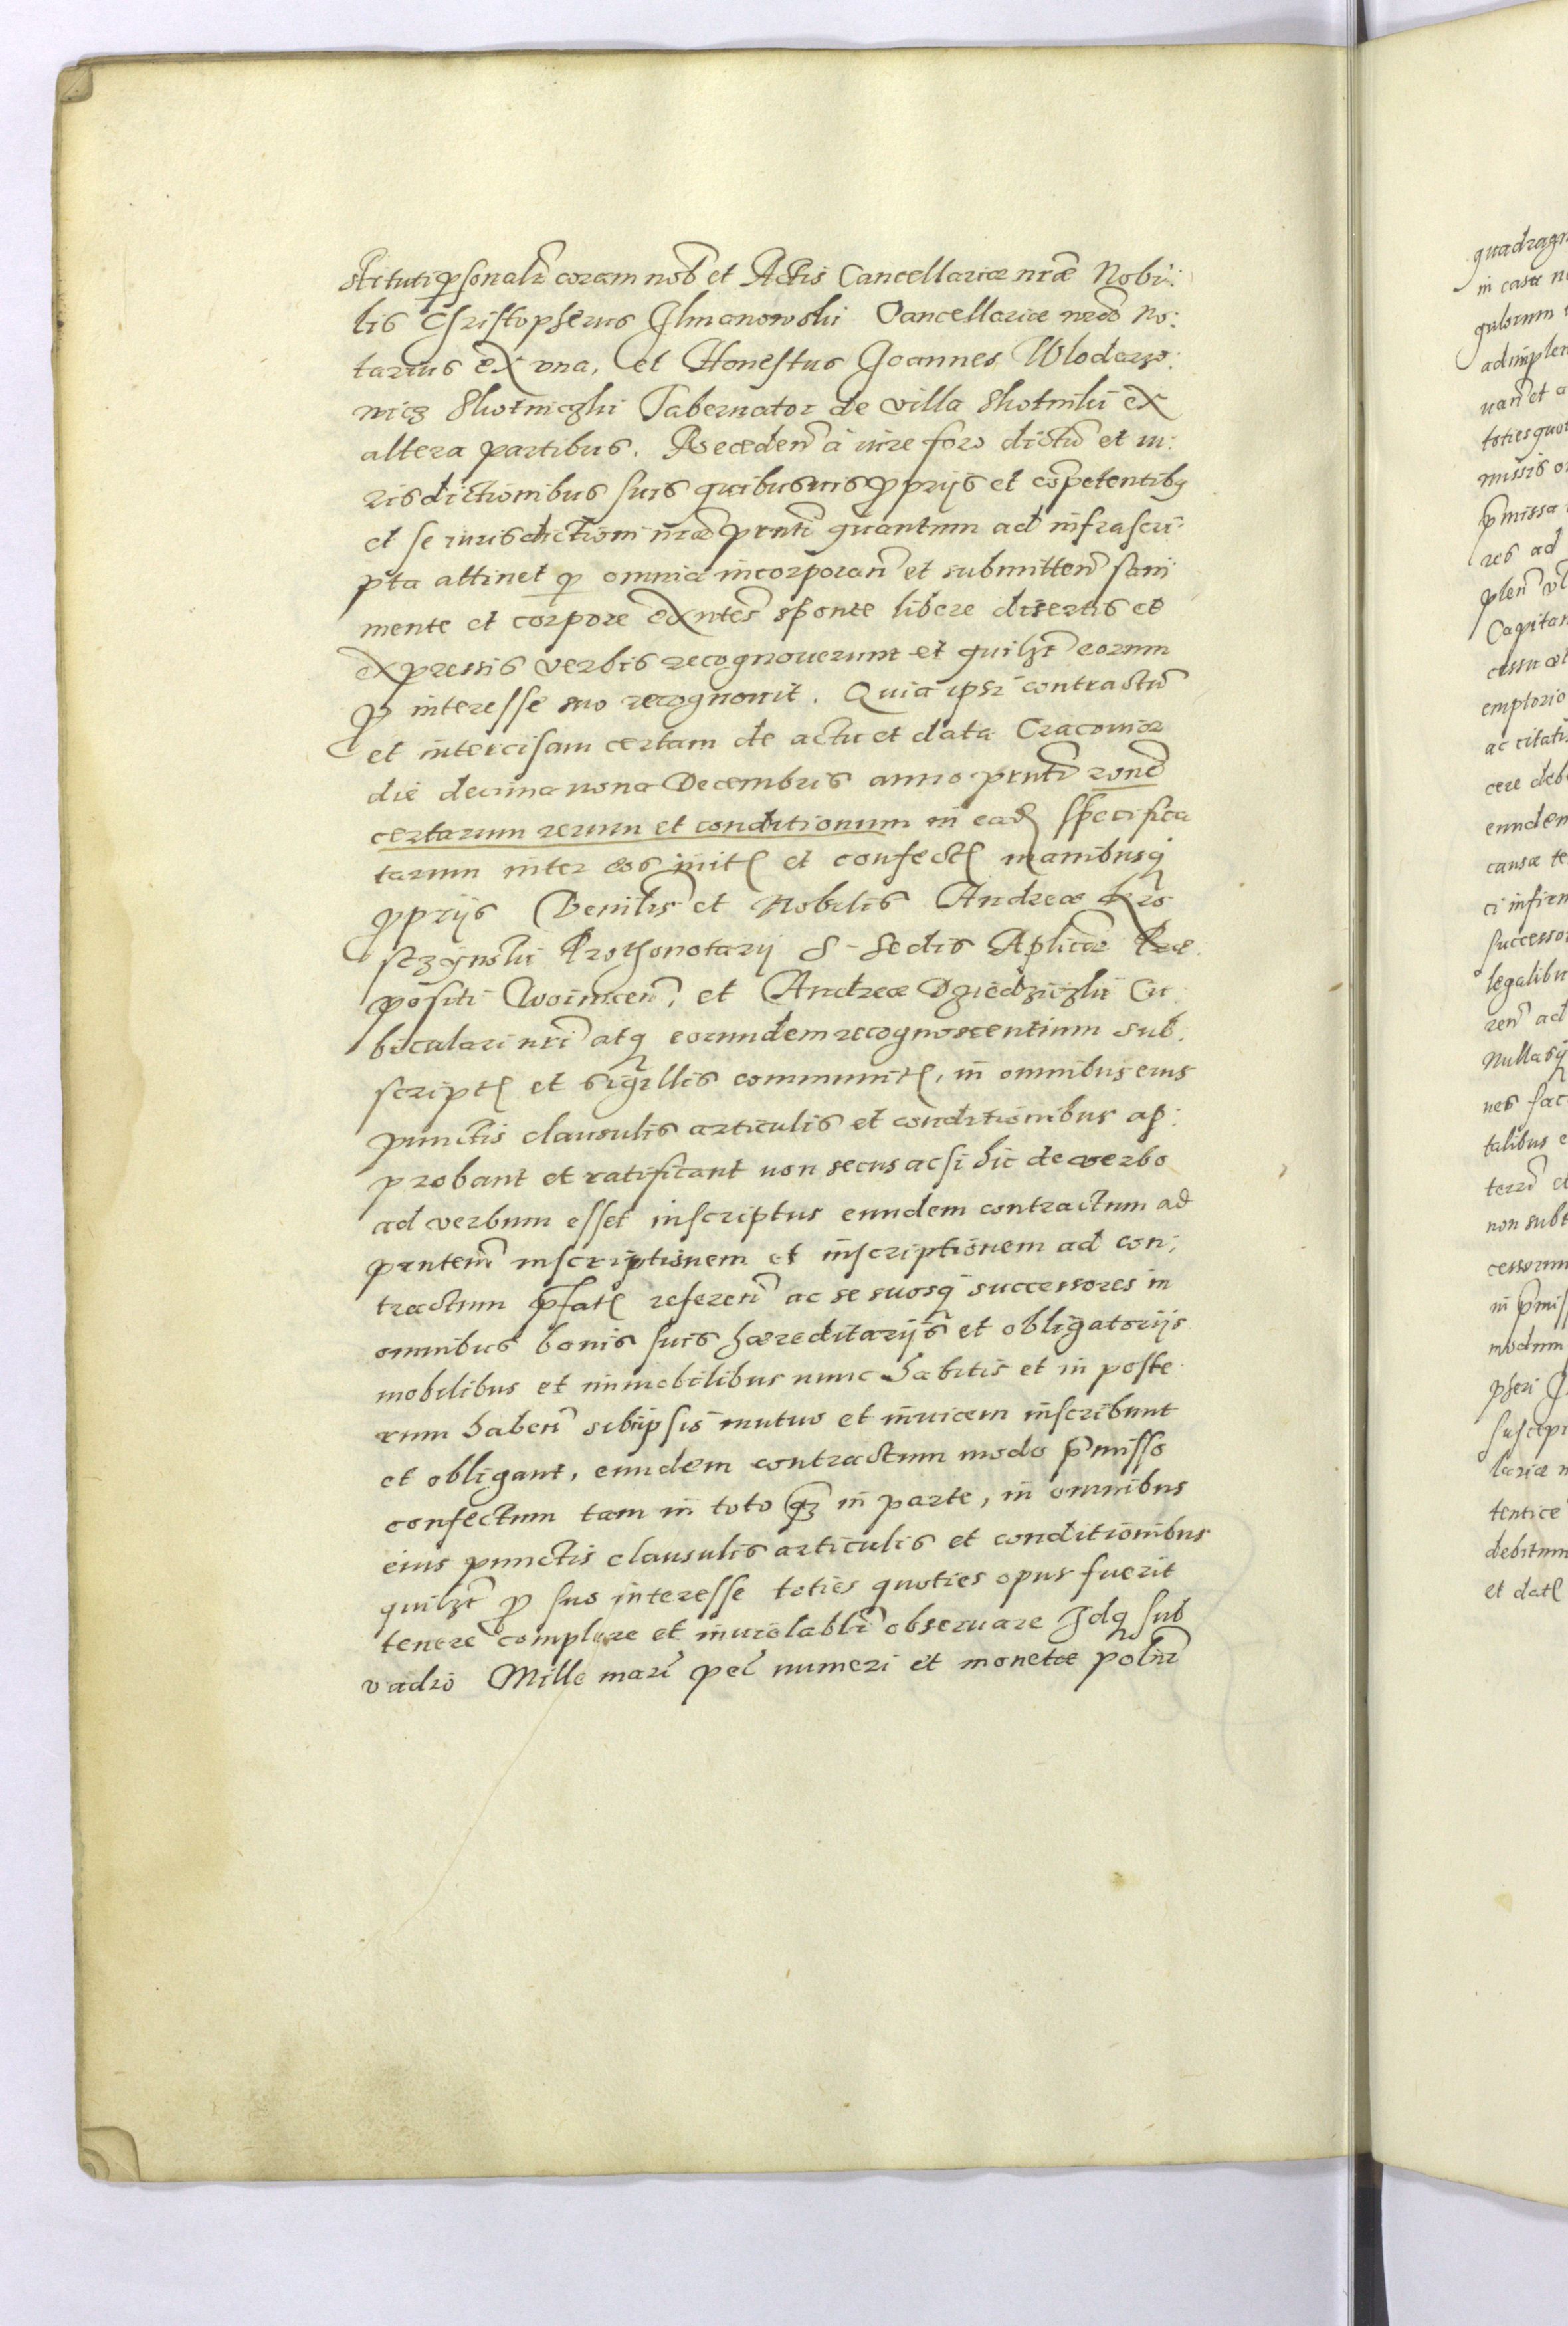 stituti psonalr coram nob et Actis Cancellariæ nræ Nobi:
lis Christopherus Ilmanowski Cancellariæ nræ No:
tarius ex vna, et Honestus Joannes Wlodarzo:
wicz Skotniczki Tabernator de villa Skotniki ex
altera partibus. Recedeñ à iure foro dictu et iu:
risdictionibus suis quibusuis pprijs et competentibq
et se iurisdictioni nræ prnti quantum ad infrascri:
pta attinet p omnia incorporañ et submitteñ sani
mente et corpore exntes sponte libere disertis et
expressis verbis recognouerunt et quilzt eorum
p interesse suo recognouit. Quia ipsi contractu
et intercisam certam de actu et data Cracouiæ
die decima nona Decembris anno prnti rone
certarum rerum et conditionum in ead specifica
tarum inter eos init et confect manibusq
pprijs Venilis et Nobilis Andreæ Kro
sczynski Prothonotarij S Sedis Aplicæ Præ
positi Woiniceñ, et Andreæ Dziedziczki Cu
biculari nri atq eorundem recognoscentium sub
script et sigillis communit, in omnibus eius
punctis clausulis articulis et conditionibus ap:
probant et ratificant non secus ac si hic de verbo
ad verbum esset inscriptus eundem contractum ad
prntem inscriptionem et inscriptionem ad con:
tractum pfat refereñ ac se suosq successores in
omnibus bonis suis hæreditarijs et obligatorijs
mobilibus et immobilibus nunc habitis et in poste
rum habeñ sibiipsis mutuo et inuicem inscribunt
et obligant, eundem contractum modo pmisso
confectum tam in toto qz in parte, in omnibus
eius punctis clausulis articulis et conditionibus
quilzt p suo interesse toties quoties opus fuerit
tenere complere et inuiolablr obseruare Idq sub
vadio Mille marc pec numeri et monetæ polr
in casu
gulorum
toties quo
missis
pmissa
res ad
Capitan
emptorio
ac citati
cere deb
eundem
causæ te
ci infirm
successo
legalibu
nullasq
talibus
non subt
cessorum
in pmis
modum
pheri
suscep
tentice
debitum
et dat